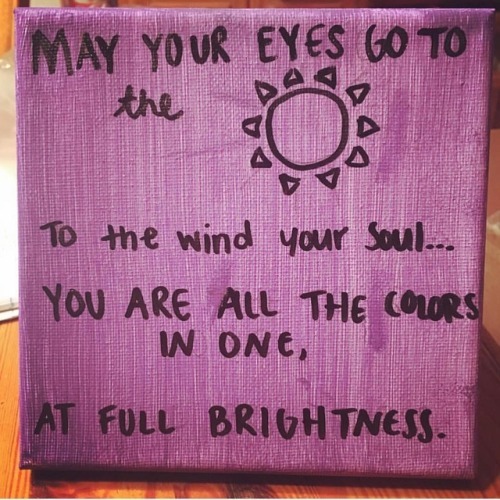 MAY YOUR EYES GO TO
the
TO the wind your Soul...
YOU ARE ALL THE COLORS
IN ONE,
AT FULL BRIGHTNESS.